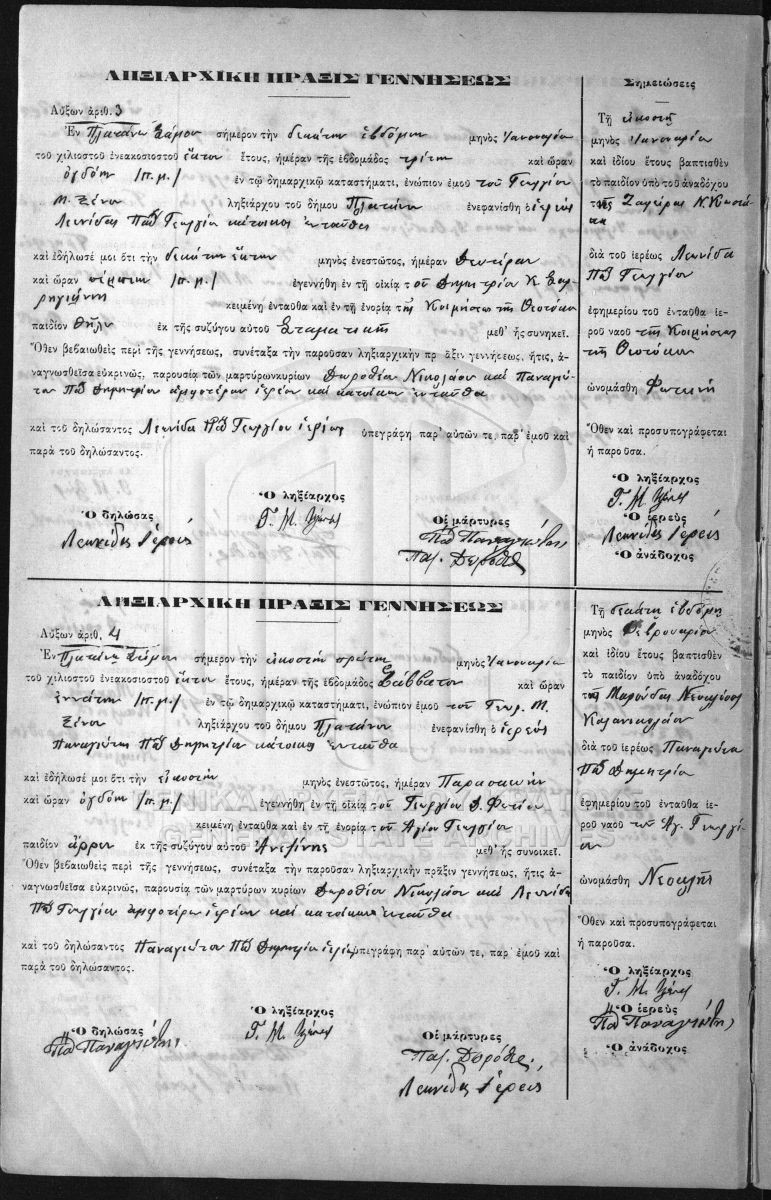 ΛΗΞΙΑΡΧΙΚΗ ΠΡΑΞΙΣ ΓΕΝΝΗΣΕΩΣ
Αὔξων ἀριθ. 3
Ἐν Πλατάνῳ Σάμου σήμερον τὴν δεκάτην ἑβδόμην μηνὸς Ἰανουαρίου
τοῦ χιλιοστοῦ ἐνεακοσιοστοῦ ἕκτου ἔτους, ἡμέραν τῆς ἑβδομάδος τρίτην καὶ ὥραν
ὀγδόην /π.μ./ ἐν τῷ δημαρχικῷ καταστήματι, ἐνώπιον ἐμοῦ τοῦ Γεωργίου
Μ. Ξένου ληξιάρχου τοῦ δήμου Πλατάνου ενεφανίσθη ὁ ἱερεὺς
Λεωνίδας Πα Γεωργίου κάτοικος ἐνταῦθα
καὶ ἐδήλωσέ μοι ὅτι τὴν δεκάτην ἕκτην μηνὸς ἐνεστῶτος, ἡμέραν Δευτέραν
καὶ ὥραν πέμπτην /π.μ./ ἐγεννήθη ἐν τῇ οἰκίᾳ τοῦ Δημητρίου Κ.
κειμένῃ ἐνταῦθα καὶ ἐν τῇ ἐνορίᾳ τῆς Κοιμήσεως τῆς Θεοτόκου
παιδίον θῆλυ ἐκ τῆς συζύγου αὐτοῦ Σταματικῆς μεθ' ἧς συνηκεῖ.
Ὅθεν βεβαιωθεὶς περὶ τῆς γεννήσεως, συνέταξα τὴν παροῦσαν ληξιαρχικὴν πρᾶξιν γεννήσεως, ἥτις, ἀ-
ναγνωσθεῖσα εὐκρινῶς, παρουσίᾳ τῶν μαρτύρων κυρίων Δωροθέου Νικολάου καὶ Παναγιώ-
του Πα Δημητρίου ἀμφοτέρων ἱερέων καὶ κατοίκων ἐνταῦθα
καὶ τοῦ δηλώσαντος Λεωνίδα Πα Γεωργίου ἱερέως ὑπεγράφη παρ' αὐτῶν τε, παρ' ἐμοῦ καὶ
παρὰ τοῦ δηλώσαντος.
Ὁ ληξίαρχος
Γ. Μ. Ξένος
Ὁ δηλώσας
Λεωνίδας Ἱερεύς
Οἱ μάρτυρες
Πα Παναγιώτης
Παπ. Δωρόθεος
Σημειώσεις
Τῇ εἰκοστῇ
μηνὸς Ἰανουαρίου
καὶ ἰδίου ἔτους βαπτισθὲν
τὸ παιδίον ὑπὸ τοῦ ἀναδόχου
τῆς Ζαφείρας Ν.
διὰ τοῦ ἱερέως Λεωνίδα
Πα Γεωργίου
ἐφημερίου τοῦ ἐνταῦθα ἱε-
ροῦ ναοῦ τῆς Κοιμήσεως
τῆς Θεοτόκου
ὠνομάσθη Φωτεινή
Ὅθεν καὶ προσυπογράφεται
ἡ παροῦσα.
Ὁ ληξίαρχος
Γ. Μ. Ξένος
Ὁ ἱερεὺς
Λεωνίδας Ἱερεύς
Ὁ ἀνάδοχος
ΛΗΞΙΑΡΧΙΚΗ ΠΡΑΞΙΣ ΓΕΝΝΗΣΕΩΣ
Αὔξων ἀριθ. 4
Ἐν Πλατάνῳ Σάμου σήμερον τὴν εἰκοστὴν πρώτην μηνὸς Ἰανουαρίου
τοῦ χιλιοστοῦ ἐνεακοσιοστοῦ ἕκτου ἔτους, ἡμέραν τῆς ἑβδομάδος Σάββατον καὶ ὥραν
ἐννάτην /π.μ./ ἐν τῷ δημαρχικῷ καταστήματι, ἐνώπιον ἐμοῦ τοῦ Γεωρ. Μ.
Ξένου ληξιάρχου τοῦ δήμου Πλατάνου ἐνεφανίσθη ὁ ἱερεὺς
Παναγιώτης Πα Δημητρίου κάτοικος ἐνταῦθα
καὶ ἐδήλωσέ μοι ὅτι τὴν εἰκοστὴν μηνὸς ἐνεστῶτος, ἡμέραν Παρασκευὴν
καὶ ὥραν ὀγδόην /π.μ./ ἐγεννήθη ἐν τῇ οἰκίᾳ τοῦ Γεωργίου Δ. Φωτίου
κειμένῃ ἐνταῦθα καὶ ἐν τῇ ἐνορίᾳ τοῦ Ἁγίου Γεωργίου
παιδίον ἄρρεν ἐκ τῆς συζύγου αὐτοῦ Ἀνεζίνης μεθ' ἧς συνοικεῖ.
Ὅθεν βεβαιωθεὶς περὶ τῆς γεννήσεως, συνέταξα τὴν παροῦσαν ληξιαρχικὴν πρᾶξιν γεννήσεως, ἥτις ἀ-
ναγνωσθεῖσα εὐκρινῶς, παρουσίᾳ τῶν μαρτύρων κυρίων Δωροθέου Νικολάου καὶ Λεωνίδα
Πα Γεωργίου ἀμφοτέρων ἱερέων καὶ κατοίκων ἐνταῦθα
καὶ τοῦ δηλώσαντος Παναγιώτου Πα Δημητρίου ἱερέως ὑπεγράφη παρ' αὐτῶν τε, παρ' ἐμοῦ καὶ
παρὰ τοῦ δηλώσαντος.
Ὁ ληξίαρχος
Γ. Μ. Ξένος
Ὁ δηλώσας
Πα Παναγιώτης
Οἱ μάρτυρες
Παπ. Δωρόθεος
Λεωνίδας Ἱερεύς
Τῇ δεκάτῃ ἑβδόμῃ
μηνὸς Φεβρουαρίου
καὶ ἰδίου ἔτους βαπτισθὲν
τὸ παιδίον ὑπὸ ἀναδόχου
τῆς Μαρούδας Νεοκλέους
διὰ τοῦ ἱερέως Παναγιώτου
Πα Δημητρίου
ἐφημερίου τοῦ ἐνταῦθα ἱε-
ροῦ ναοῦ τοῦ Ἁγ. Γεωργί-
ου
ὠνομάσθη Νεοκλῆς
Ὅθεν καὶ προσυπογράφεται
ἡ παροῦσα.
Ὁ ληξίαρχος
Γ. Μ. Ξένος
Ὁ ἱερεὺς
Πα Παναγιώτης
Ὁ ἀνάδοχος